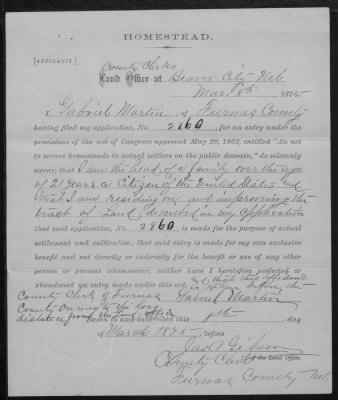 HOMESTEAD.
[AFFIDAVIT.]
County Clerks
Land Office at Beaver City Neb
Mar. 8th 1875
I, Gabriel Martin of Furnas County
having filed my application, No. 2860, for an entry under the
provisions of the act of Congress approved May 20, 1862, entitled "An act
to secure homesteads to actual settlers on the public domain," do solemnly
swear, that I am the head of a family over the age
of 21 years a Citizen of the United States and
that I am residing on and improving the
tract of Land described in my application
that said application, No. 2860, is made for the purpose of actual
settlement and cultivation; that said entry is made for my own exclusive
benefit and not directly or indirectly for the benefit or use of any other
person or persons whomsoever; neither have I heretofore perfected or
abandoned an entry made under this act that this affidavit
is before the
County Clerk of Furnas Gabriel Martin
County Owing to the long
distance from the Land Office
Sworn to and subscribed this 8th day
of March 1875, before
Jas A Gibson
County Clerk of the Land Office.
Furnas County Neb